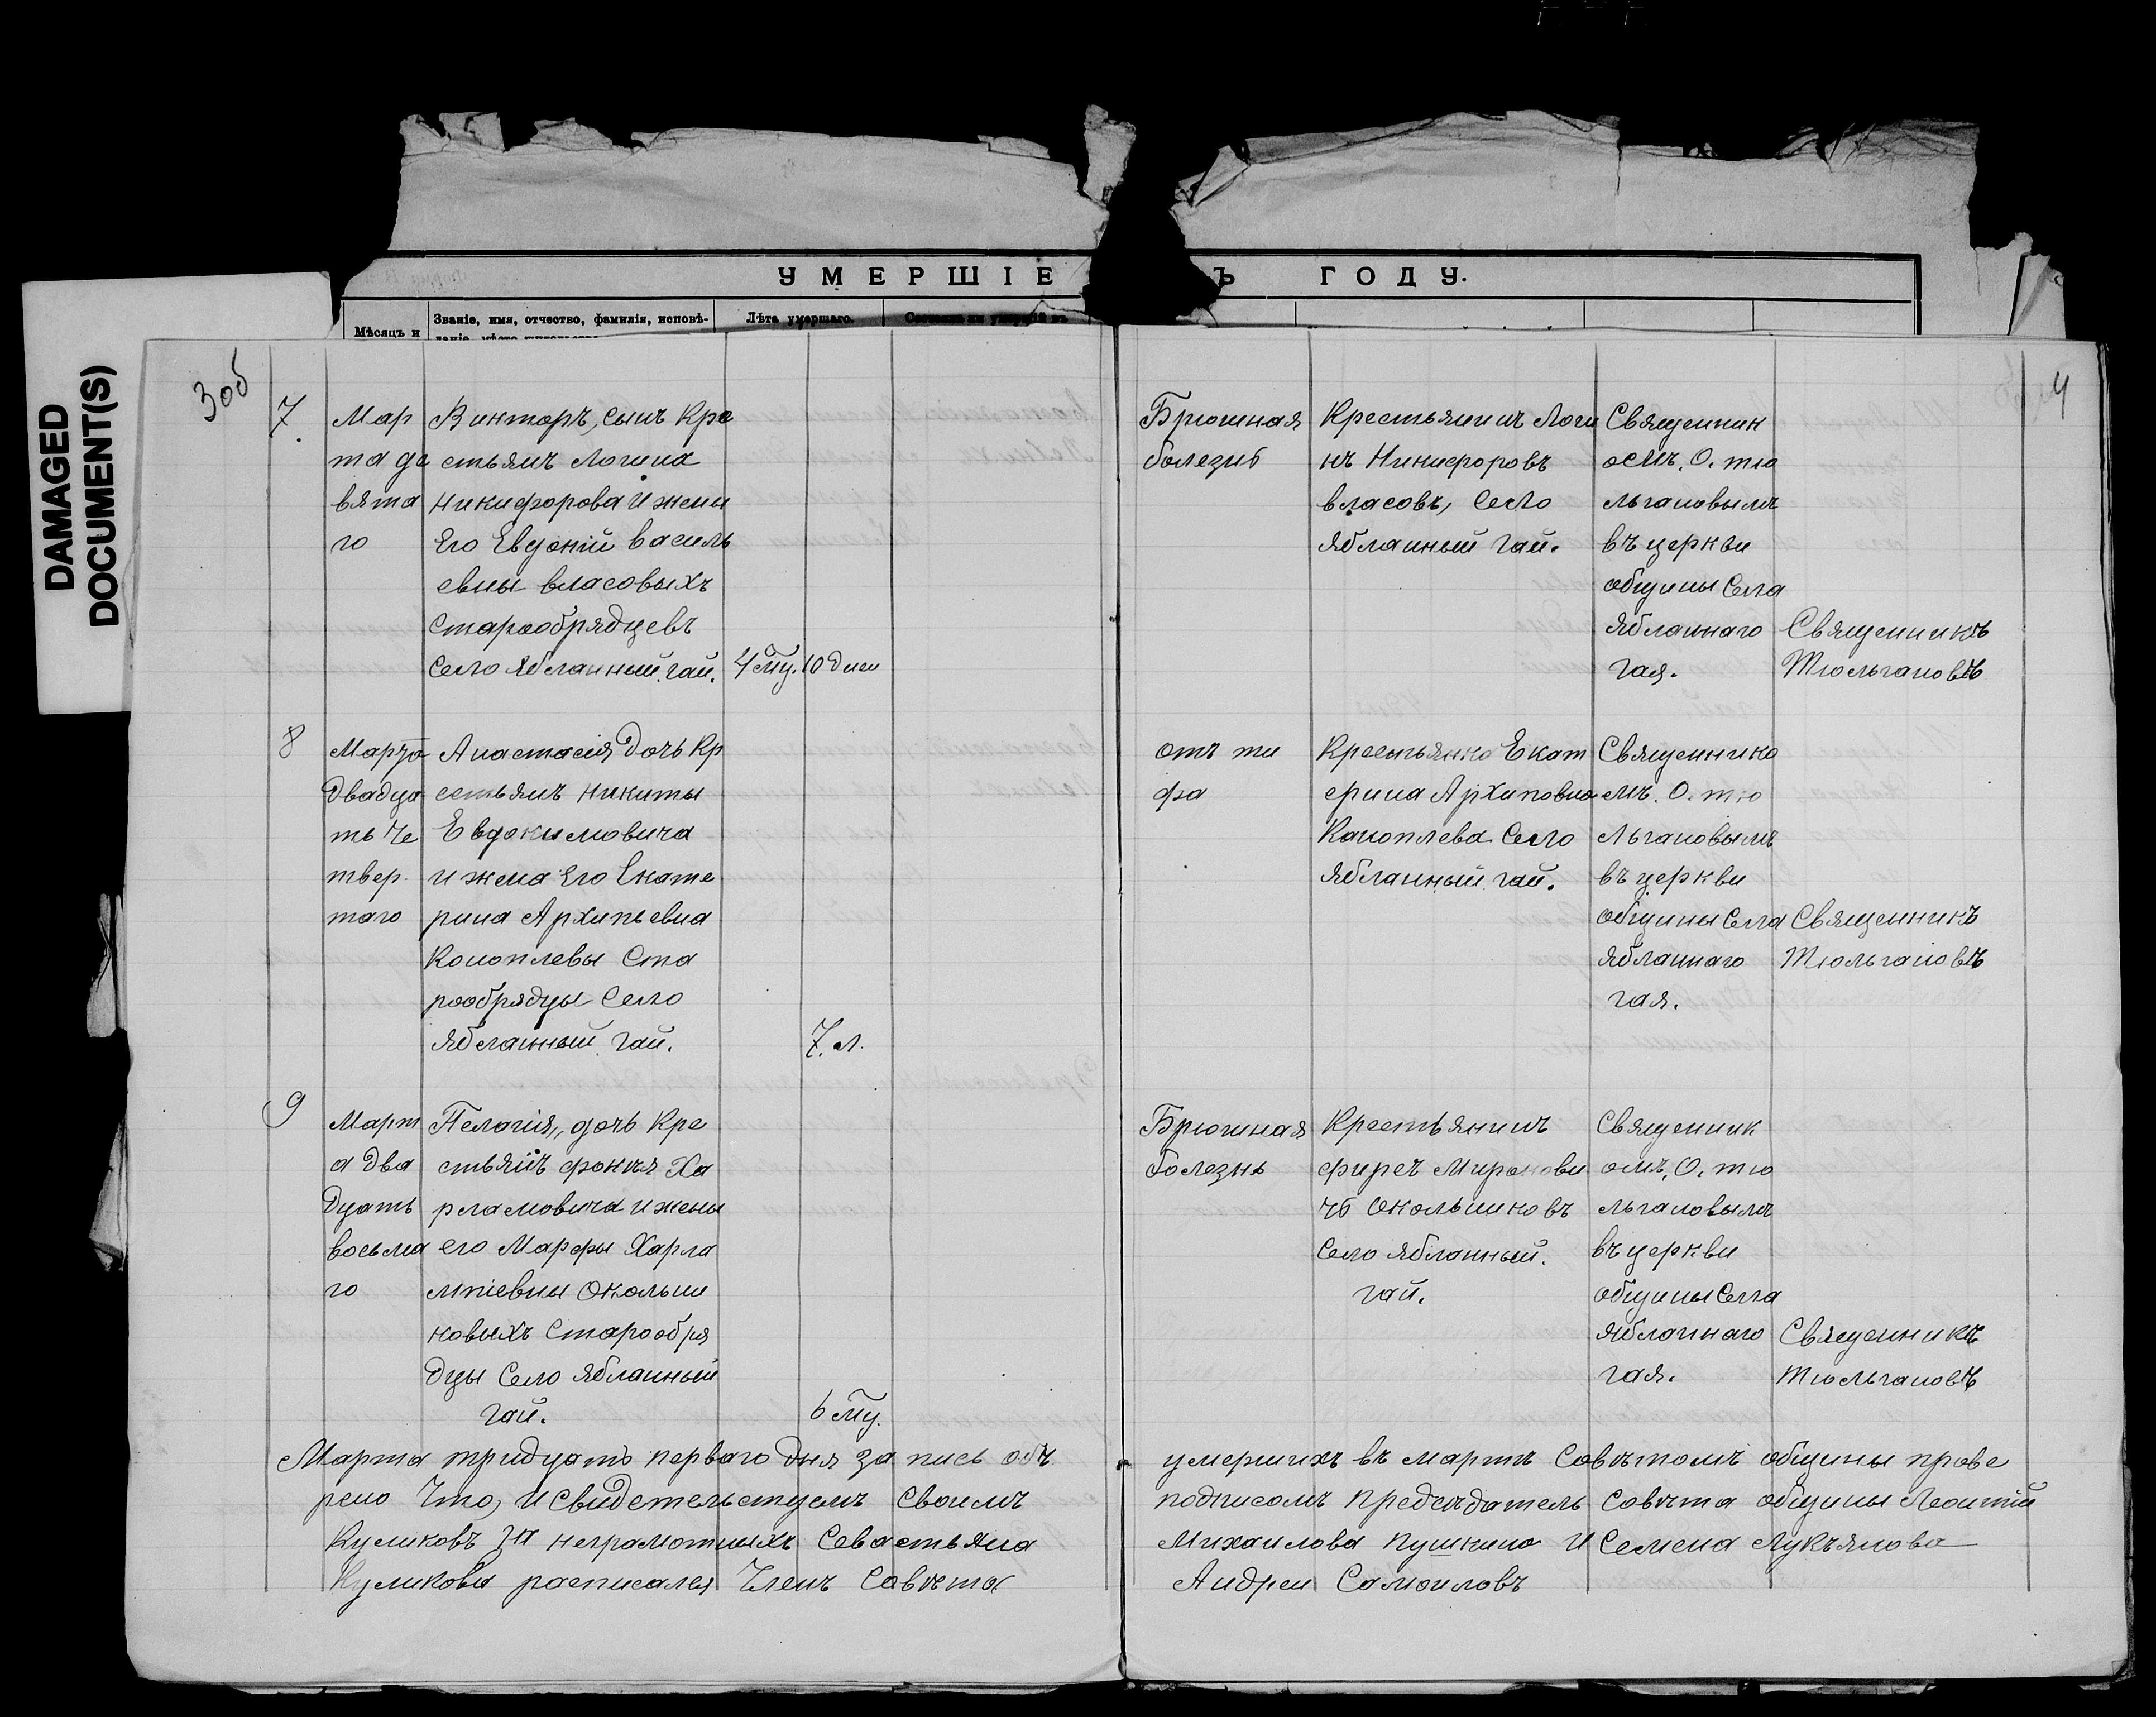 DAMAGED
DOCUMENT(S)
УМЕРШІЕ Ъ ГОДУ.
Мѣсяцъ и
Званіе, имя, отчество, фамилія, исповѣ-
Лѣта умершаго.
3 об
4
7.
Мар
та де
вята
го
Викторъ, сынъ Кре
стьянъ Логина
Никифорова и жены
Его Евдокіи Василь
евны Власовыхъ
Старообрядцевъ
Село Яблонный гай.
4 мц. 10 дней
Брюшная
болезнь
Крестьянинъ Логи
нъ Никифоровъ
Власовъ, Село
Яблонный гай.
Священник
омъ. О. Тю
льгановымъ
въ церкви
общины Села
Яблоннаго
гая.
Священникъ
Тюльгановъ
8
Марта
Двадца
ть Че
твер
таго
Анастасія Дочь Кр
естьянъ Никиты
Евдокимовича
и жена Его Екате
рина Архипьевна
Коноплевы Ста
рообрядцы Село
Яблонный гай.
7. л.
отъ ти
фа
Крестьянка Екат
ерина Архиповна
Коноплева Село
Яблонный гай.
Священнико
емъ. О. Тю
льгановымъ
въ церкви
общины Села
Яблоннаго
гая.
Священникъ
Тюльгановъ
9
Март
а Два
дцать
восьма
го
Пелагія, дочь Кре
стьянъ Ха
рламовича и жены
его Марфы Харла
мпіевны Окольни
новыхъ Старообря
дцы Село Яблонный
гай.
6 мц.
Брюшная
болезнь
Крестьянинъ
Миронови
чъ Окольниковъ
Село Яблонный
гай.
Священник
омъ, О. Тю
льгановымъ
въ церкви
общины Села
Яблоннаго
гая.
Священникъ
Тюльгановъ
Марта тридцать перваго Дня за пись объ умершихъ въ мартъ Совѣтомъ общины прове
рено Что, и Свидетельствуемъ Своимъ подписомъ Председатель Совѣта общины Леонтій
Куликовъ неграмотныхъ Севастьяна Михаилова Пушкина и Семена Лукъянова
Куликова расписался Членъ Совѣта Андреи Самоиловъ